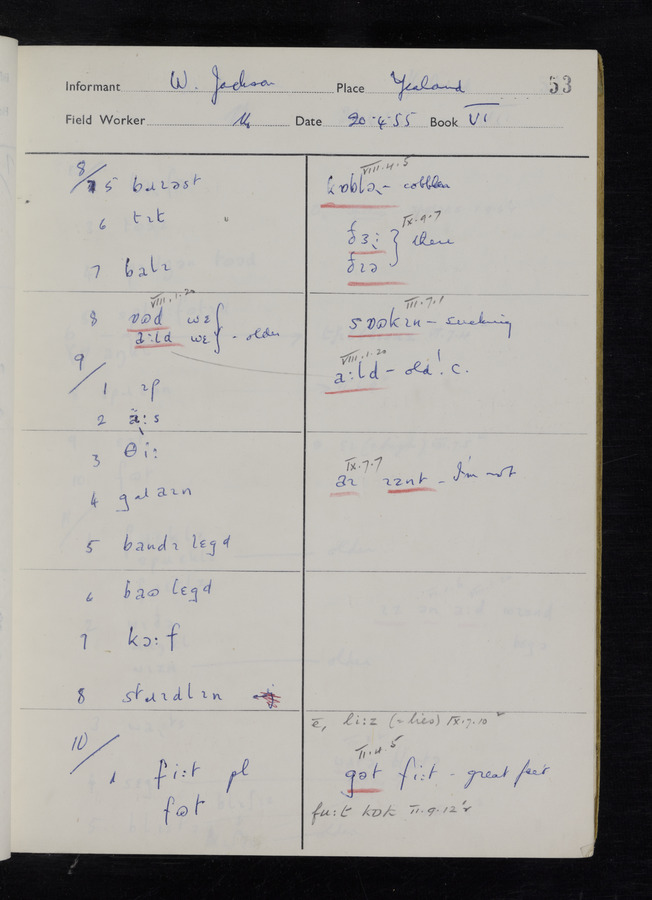 Informant W. Jackson Place Yealand 53
Field Worker Date 20·4·55 Book VI
8/
5 bɹɛəst
6 tɪt "
7 balɪ
VIII.1.20
8 ɒʊd wɛ
a:ld wɛ } - older
9/
1 ɪp
2 a:s
3 θi:
4 gɹaɪn
5 bandɪ legd
6 baʊ legd
7 kɔ:f
8
10/
1 fi:t pl
fʊt
VIII.4.5
kɒblə - cobbler
IX.9.7
ðɜ: } there
ðɪə
III.7.1
sʊʊkɪn - sucking
VIII.1.20
a:ld - old! C.
IX.7.7
aɪ ɪznt - I'm not
li:z (= lies) IX.7.10
II.4.5
gət fi:t - great feet
fu:t kɒk II.9.12